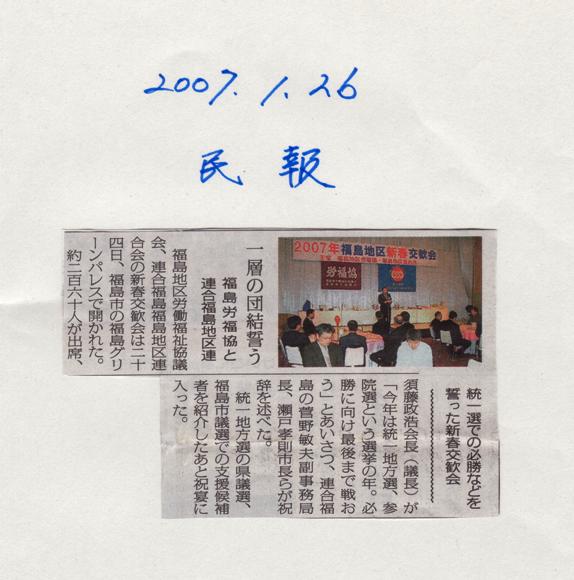 2007.1.26
民報
一層の団結誓う
福島労福協と
連合福島地区連
福島地区労働福祉協議
会、連合福島福島地区連
合会の新春交歓会は二十
四日、福島市の福島グリ
ーンパレスで開かれた。
約二百六十人が出席、
2007年福島地区新春交歓会
労福協
統一選での必勝などを
誓った新春交歓会
須藤政浩会長(議長)が
「今年は統一地方選、参
院選という選挙の年。必
勝に向け最後まで戦お
う」とあいさつ、連合福
島の菅野敏夫副事務局
長、瀬戸孝則市長らが祝
辞を述べた。
統一地方選の県議選、
福島市議選での支援候補
者を紹介したあと祝宴に
入った。